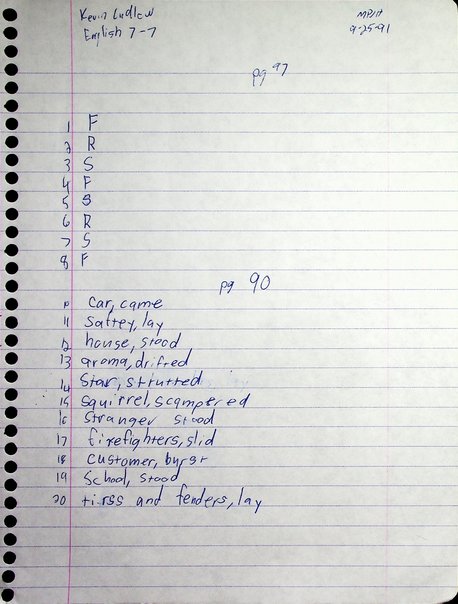 Kevin Ludlow
English 7-7
9-25-91
pg 97
1 F
2 R
3 S
4 F
5 S
6 R
7 S
8 F
pg 90
car, came
11 Saftey, lay
12 house, stood
13 aroma, drifted
14 Star, strutted
15 Squirrel, scampered
16 Stranger stood
17 firefighters, slid
18 customer, burst
19 School, stood
20 and fenders, lay